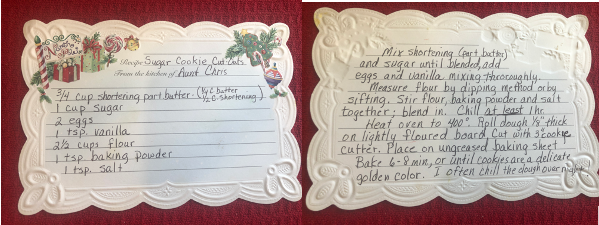 North Pole
Recipe Sugar Cookie Cut-Outs
From the kitchen of Aunt Chris
3/4 cup shortening part butter. (1/4 C butter
1/2 C. shortening)
1 cup sugar
2 eggs
1 tsp. vanilla
2 1/2 cups flour
1 tsp baking powder
1 tsp. salt
Mix shortening (part butter)
and sugar until blended, add
eggs and vanilla mixing thoroughly.
Measure flour by dipping method or by
sifting. Stir flour, baking powder and salt
together; blend in. Chill at least 1 hr.
Heat oven to 400°. Roll dough 1/8" thick
on lightly floured board. Cut with 3" cookie
cutter. Place on ungreased baking sheet
Bake 6-8 min, or until cookies are a delicate
golden color. I often chill the dough over night